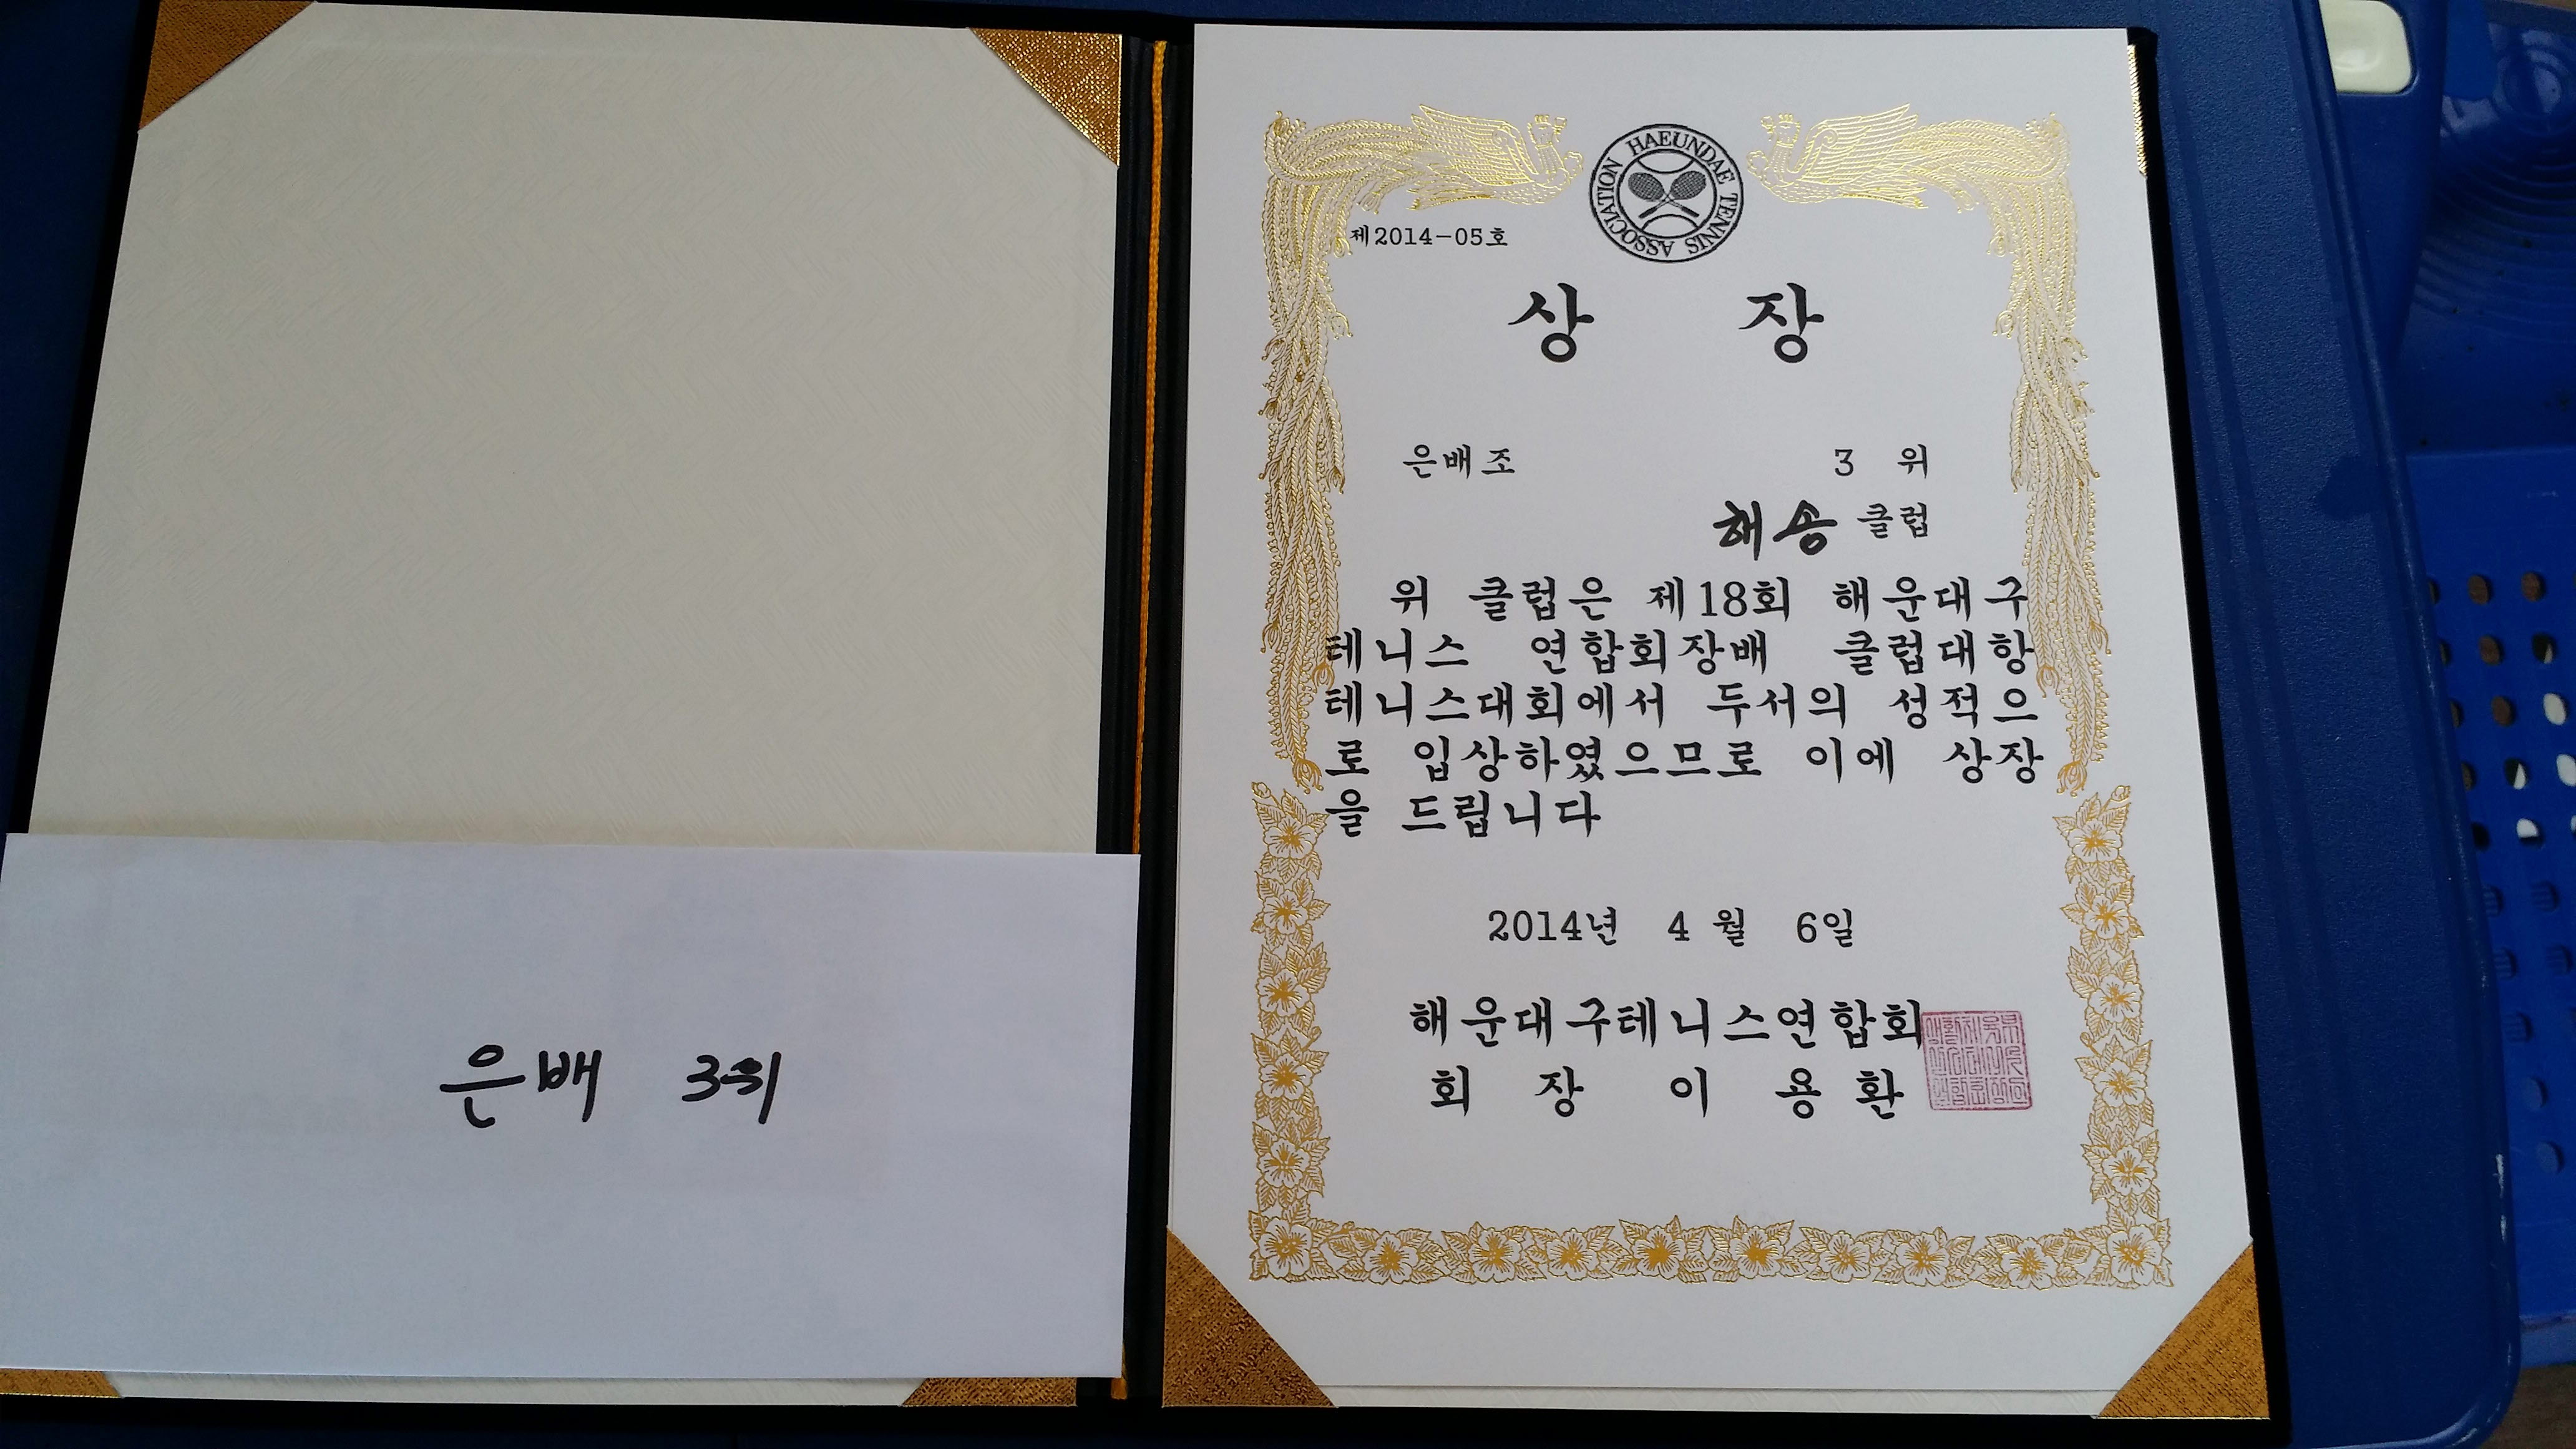 은배 3위
HAEUNDAE TENNIS ASSOCIATION
제2014-05호
상 장
은배조 3 위
해송 클럽
위 클럽은 제18회 해운대구
테니스 연합회장배 클럽대항
테니스대회에서 두서의 성적으
로 입상하였으므로 이에 상장
을 드립니다
2014년 4 월 6일
해운대구테니스연합회
회 장 이 용 환